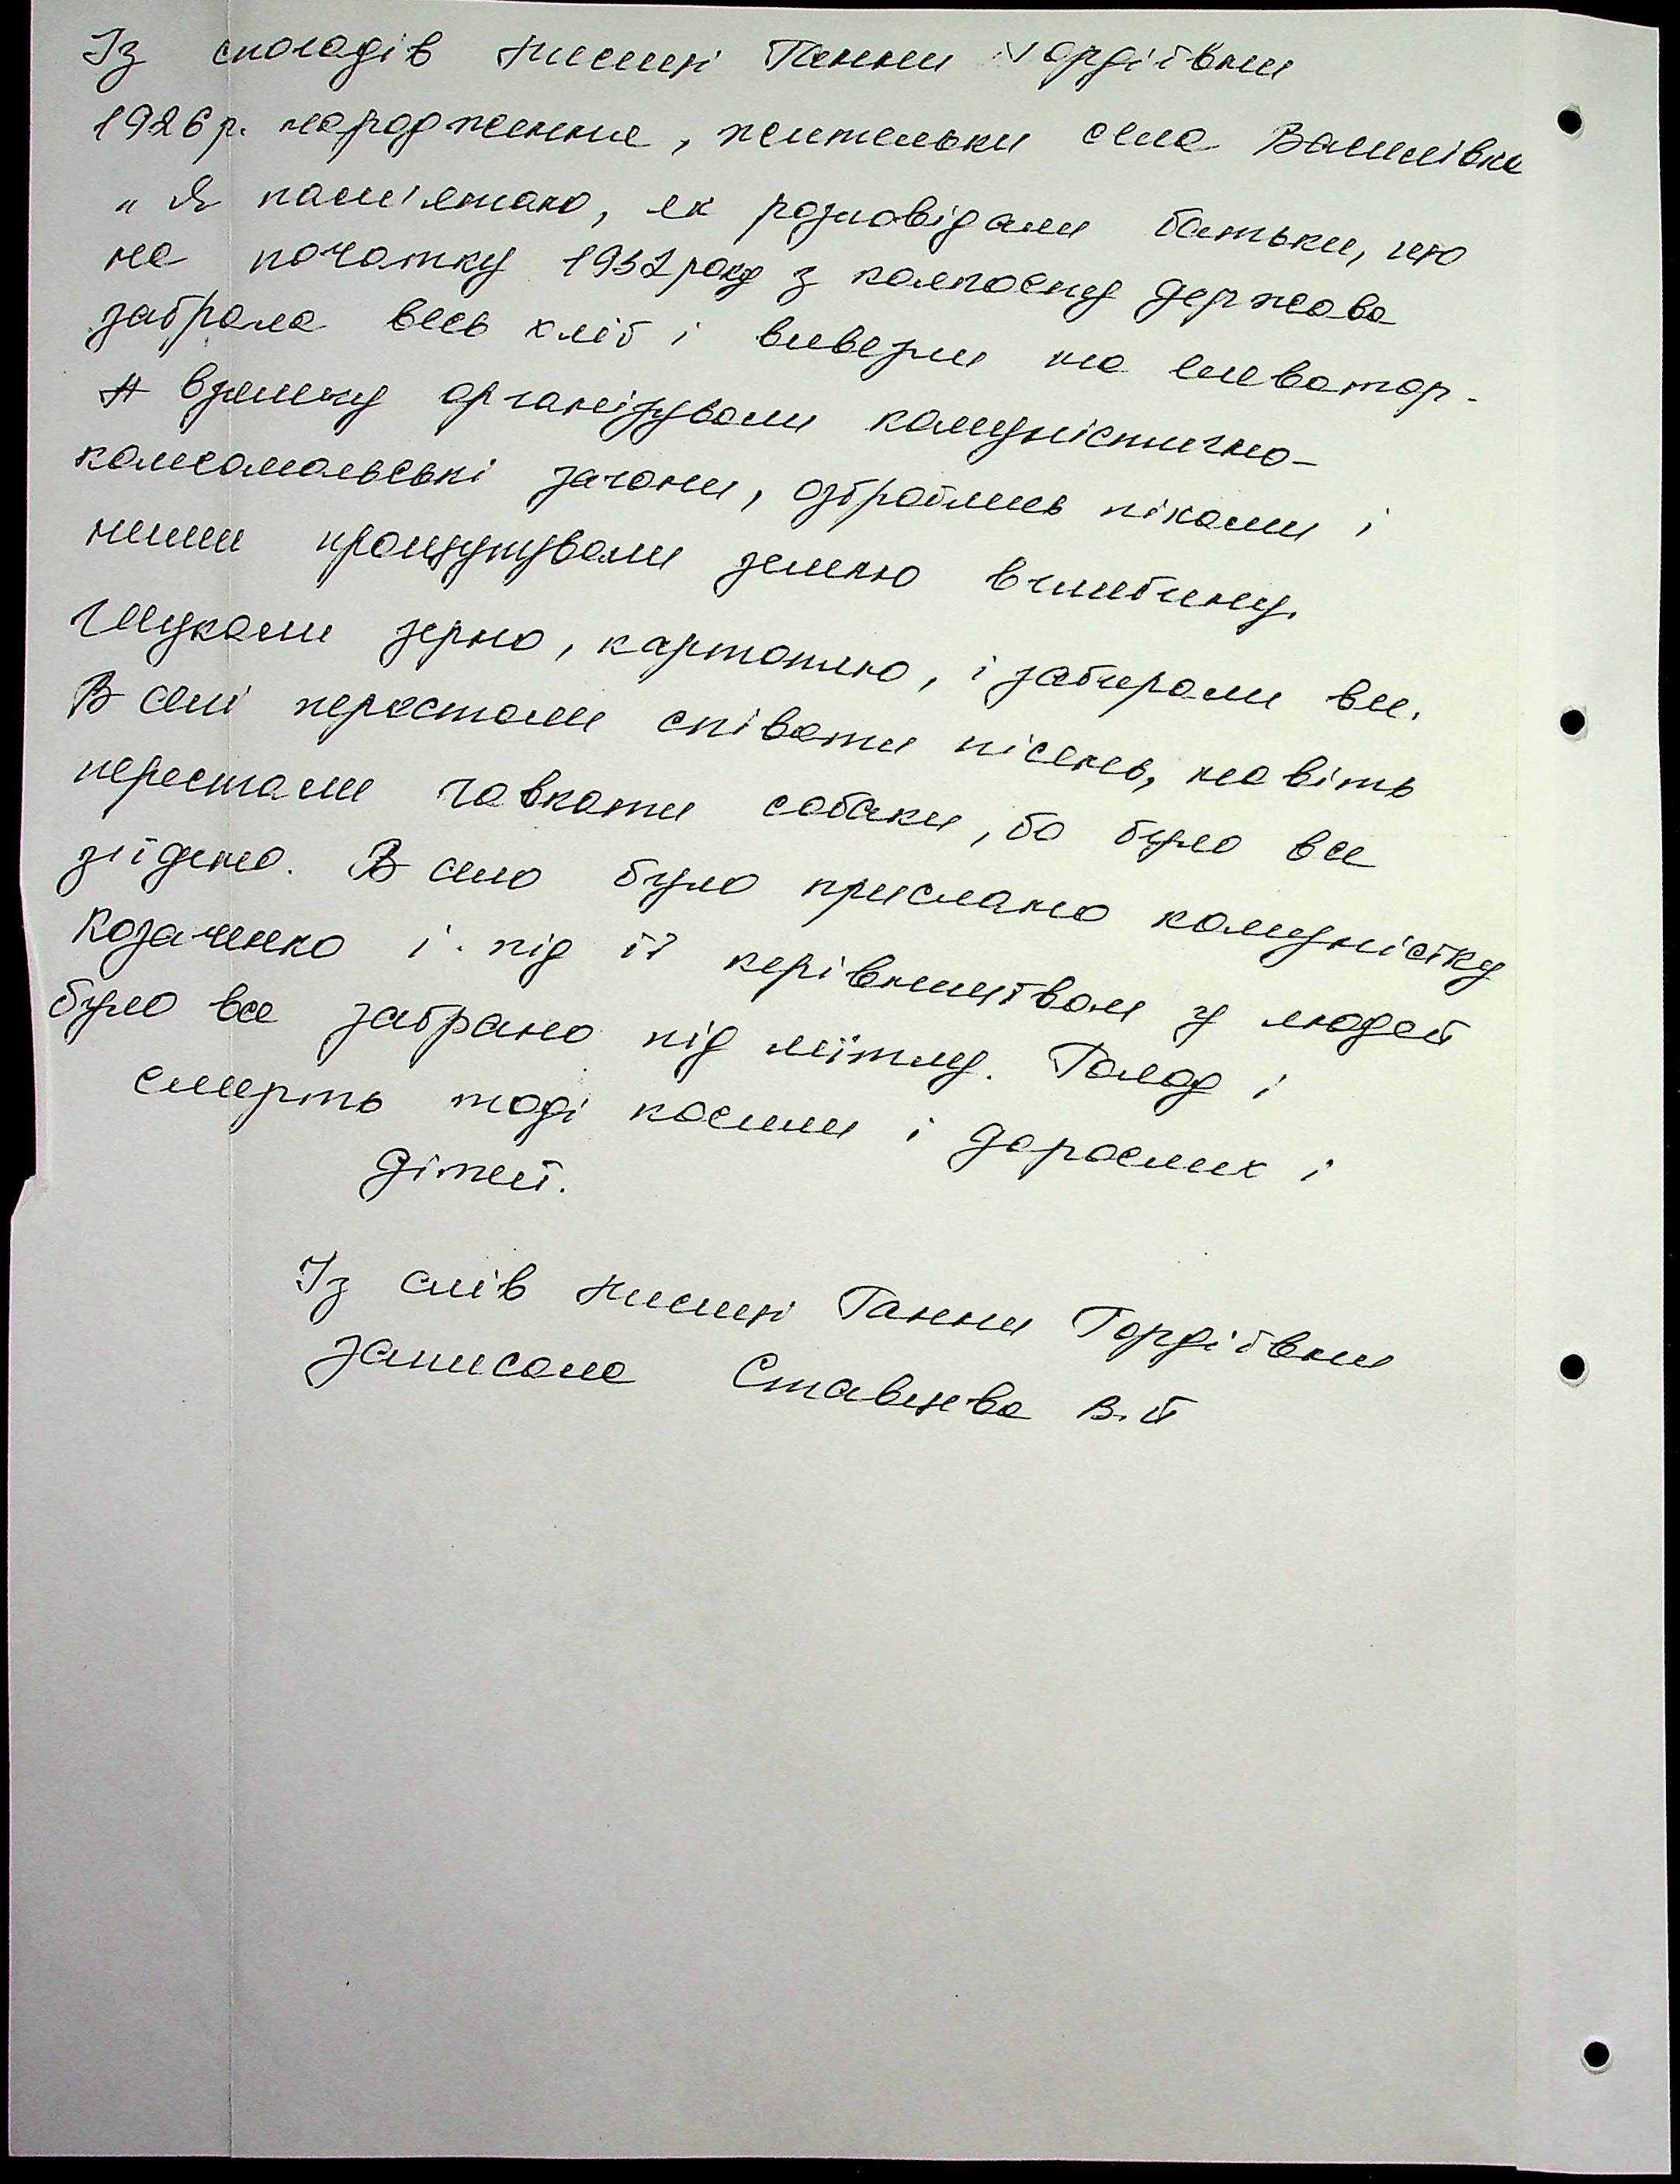 Із спогадів Нисині Ганни Гордіївни
1926 р. народження, жительки села Вашнівка
" Я пам'ятаю, як розповідали батьки, що
на початку 1932 року з колгоспу держава
забрала весь хліб і вивезли на елеватор.
А взимку організували комуністично-
комсомольські загони, озброїлись піками і
ними прощупували землю вглибину.
Шукали зерно, картоплю, і забирали все.
В селі перестали співати пісень, навіть
перестали гавкати собаки, бо було все
зʼїдено. В село було прислано комуністку
Козаченко і під її керівництвом у людей
було все забрано під мітлу. Голод і
смерть тоді косили і дорослих і
дітей.
Із слів Нисині Ганни Гордіївни
записала Ставнєва В.Й